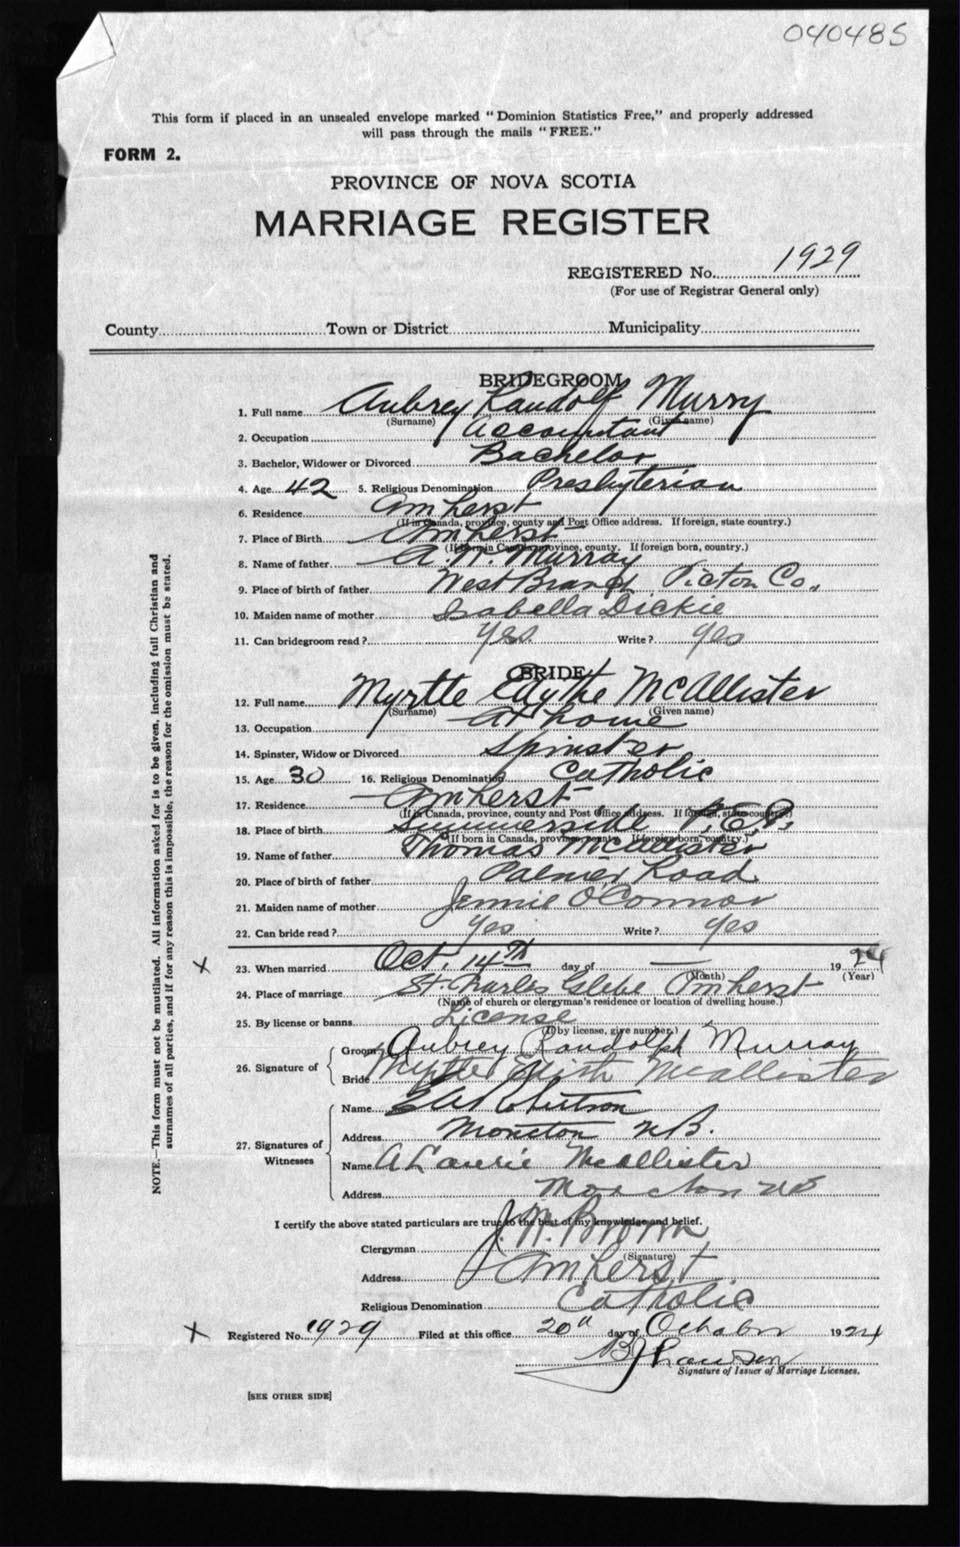 040485
This form if placed in an unsealed envelope marked "Dominion Statistics Free," and properly addressed
will pass through the mails "FREE."
FORM 2.
PROVINCE OF NOVA SCOTIA
MARRIAGE REGISTER
REGISTERED No. 1929
(For use of Registrar General only)
County Town or District Municipality
BRIDEGROOM
1. Full name Aubrey Randolf Murry
(Surname) (Given name)
2. Occupation Accountant
3. Bachelor, Widower or Divorced Bachelor
4. Age 42 5. Religious Denomination Presbyterian
6. Residence Amherst
(If in Canada, province, county and Post Office address. If foreign, state country.)
7. Place of Birth Amherst
(If born in Canada, province, county. If foreign born, country.)
8. Name of father A. W. Murray
9. Place of birth of father West Branch Pictou Co.,
10. Maiden name of mother Isabella Dickie
11. Can bridegroom read? Yes Write? Yes
BRIDE
12. Full name Myrtle Edythe McAllister
(Surname) (Given name)
13. Occupation At home
14. Spinster, Widow or Divorced Spinster
15. Age 30 16. Religious Denomination Catholic
17. Residence Amherst
(If in Canada, province, county and Post Office address. If foreign, state country.)
18. Place of birth Summerside P.E.I.
(If born in Canada, province, county. If foreign born, country.)
19. Name of father Thomas McAllister
20. Place of birth of father Palmer Road
21. Maiden name of mother Jennie O'Connor
22. Can bride read? Yes Write? Yes
X 23. When married Oct. 14th day of 1924
(Month) (Year)
24. Place of marriage St. Charles Glebe Amherst
(Name of church or clergyman's residence or location of dwelling house.)
25. By license or banns License
(If by license, give number.)
26. Signature of
Groom Aubrey Randolph Murray
Bride Myrtle Edith McAllister
27. Signatures of Witnesses
Name Robertson
Address Moncton N.B.
Name A Laurie McAllister
Address Moncton NB
I certify the above stated particulars are true to the best of my knowledge and belief.
Clergyman J. W. Brown
(Signature)
Address Amherst
Religious Denomination Catholic
X Registered No. 1929 Filed at this office 20th day of October 1924
Signature of Issuer of Marriage Licenses.
[SEE OTHER SIDE]
NOTE.—This form must not be mutilated. All information asked for is to be given, including full Christian and
surnames of all parties, and if for any reason this is impossible, the reason for the omission must be stated.